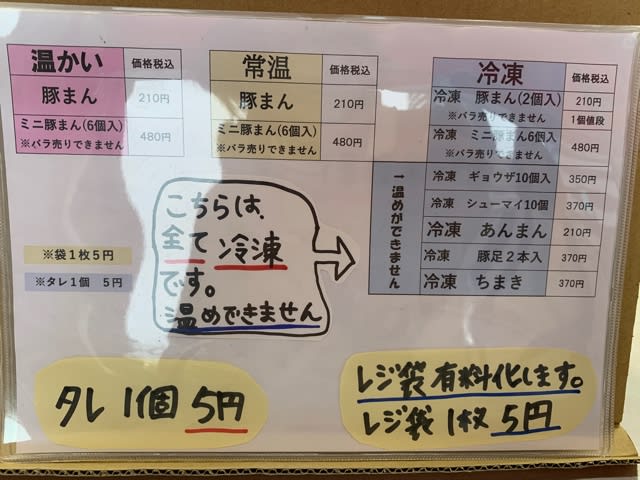 温かい 価格税込
豚まん 210円
ミニ豚まん(6個入) 480円
※バラ売りできません
常温 価格税込
豚まん 210円
ミニ豚まん(6個入) 480円
※バラ売りできません
冷凍 価格税込
冷凍 豚まん(2個入) 210円
※バラ売りできません 1個値段
冷凍 ミニ豚まん6個入 480円
※バラ売りできません
→温めができません
冷凍 ギョウザ10個入 350円
冷凍 シューマイ10個 370円
冷凍 あんまん 210円
冷凍 豚足2本入 370円
冷凍 ちまき 370円
こちらは、
全て冷凍
です。
温めできません
※袋1枚5円
※タレ1個 5円
タレ 1個 5円
レジ袋有料化します。
レジ袋 1枚 5円